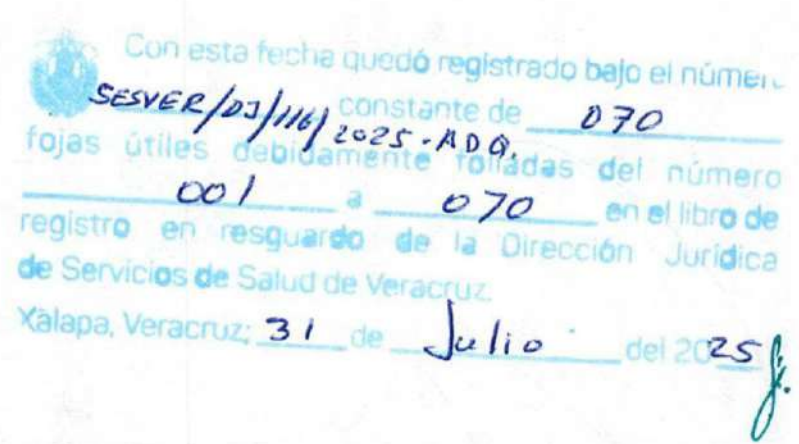 Con esta fecha quedó registrado bajo el númer
SESVER/DJ/116/2025-ADQ. constante de 070
fojas útiles debidamente foliadas del número
001 a 070 en el libro de
registro en resguardo de la Dirección Jurídica
de Servicios de Salud de Veracruz.
Xalapa, Veracruz; 31 de Julio del 2025